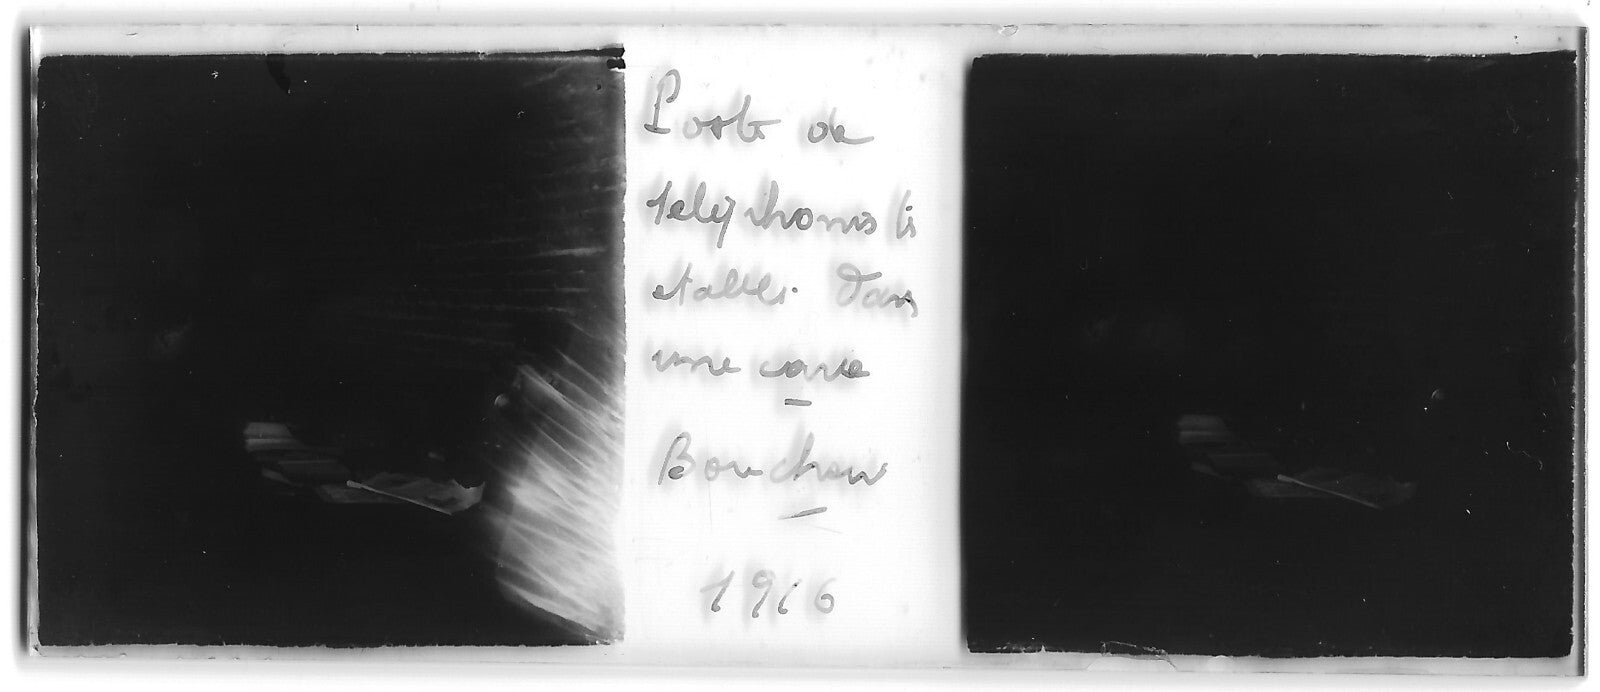 Poste de
telephonistes
etabli dans
une cave
Bouchav
1916